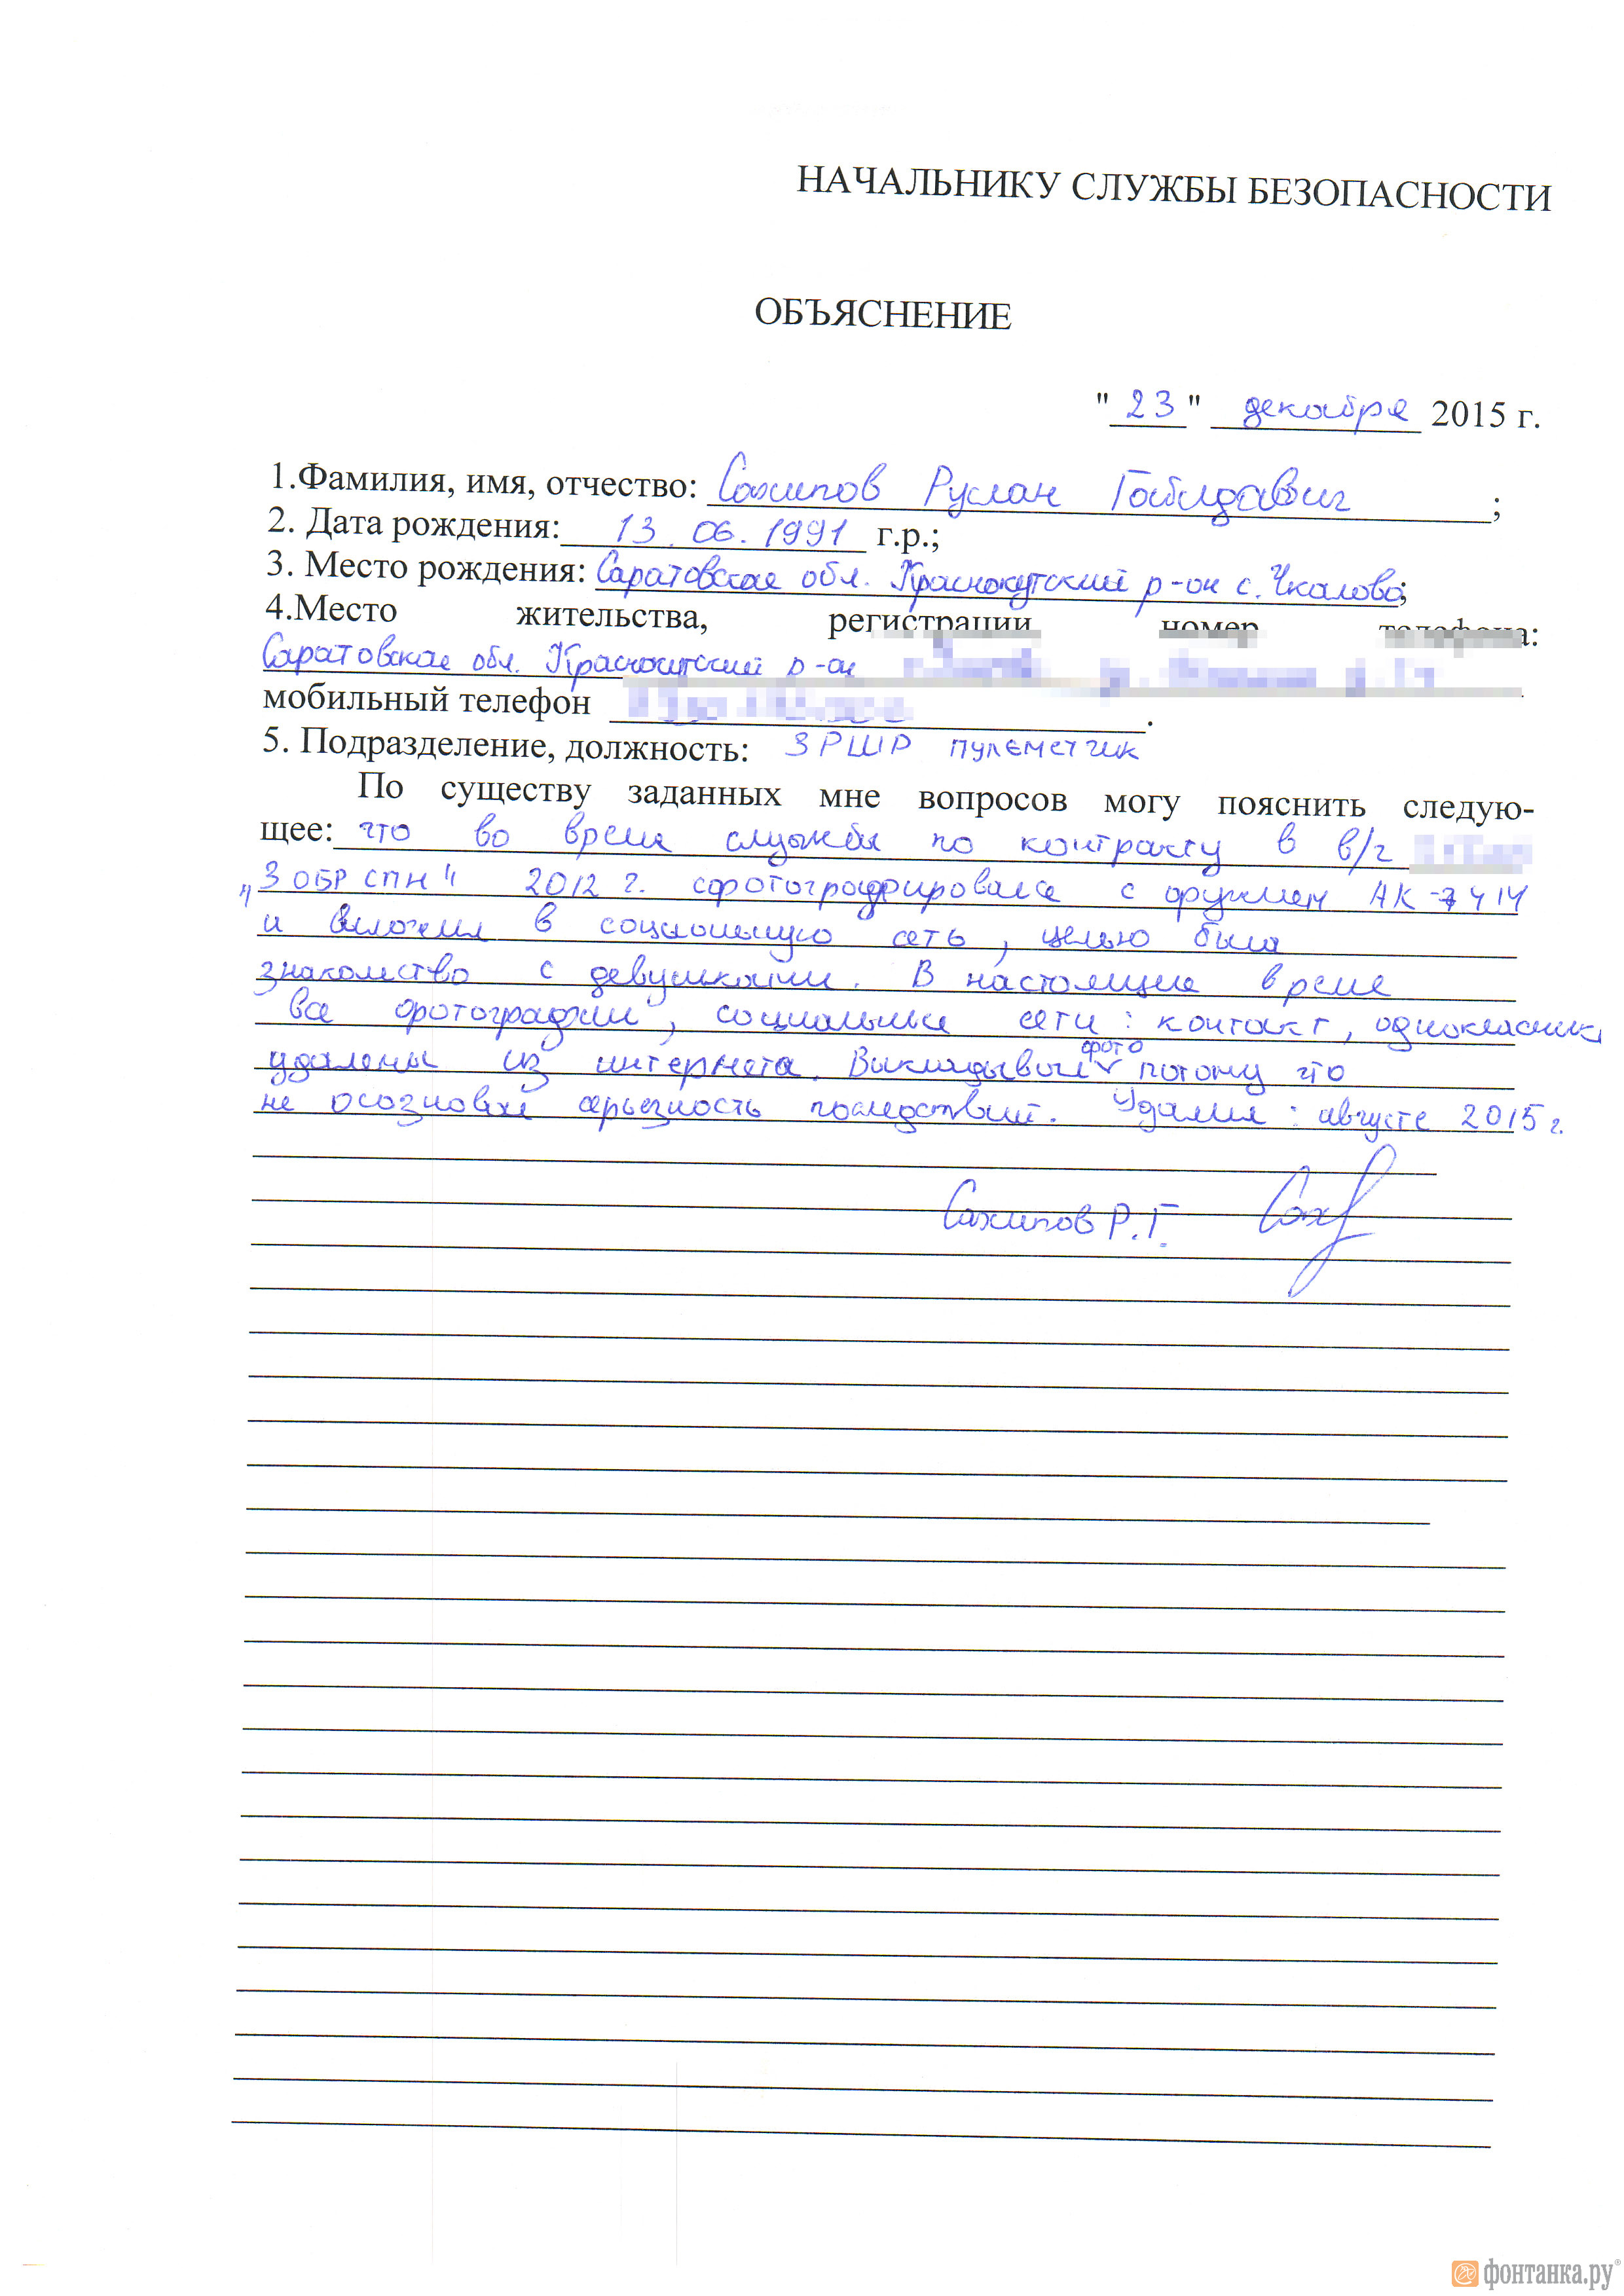 НАЧАЛЬНИКУ СЛУЖБЫ БЕЗОПАСНОСТИ
ОБЪЯСНЕНИЕ
"23" декабря 2015 г.
1.Фамилия, имя, отчество: Сахипов Руслан Габидавич;
2. Дата рождения: 13.06.1991 г.р.;
3. Место рождения: Саратовская обл. Краснокутский р-он с. Чкалово;
4.Место жительства, регистрации номер телефона:
Саратовская обл. Краснокутский р-он
мобильный телефон .
5. Подразделение, должность: 3РШР пулеметчик
По существу заданных мне вопросов могу пояснить следую-
щее: что во время службы по контракту в в/ч
"3 ОБР СПН" 2012 г. сфотографировался с оружием АК-74
и выложил в социальную сеть, целью была
знакомство с девушками. В настоящие время
все фотографии, социальные сети: контакт, однокласники
удалены из интернета. Выкладывал фото потому что
не осозновал серьезность последствий. Удалил: августе 2015 г.
Сахипов Р.Г. Сах
фонтанка.ру®